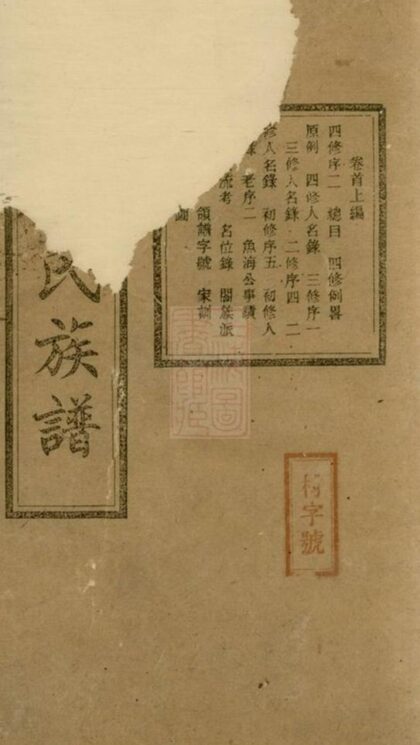 卷首上編
四修序二 總目 四修例畧
原例 四修人名錄 三修序一
三修人名錄 二修序四 二
修人名錄 初修序五 初修人
老序二 魚海公事蹟
流考 名位錄 閤族派
領譜字號 宋
圖
氏族譜
字號